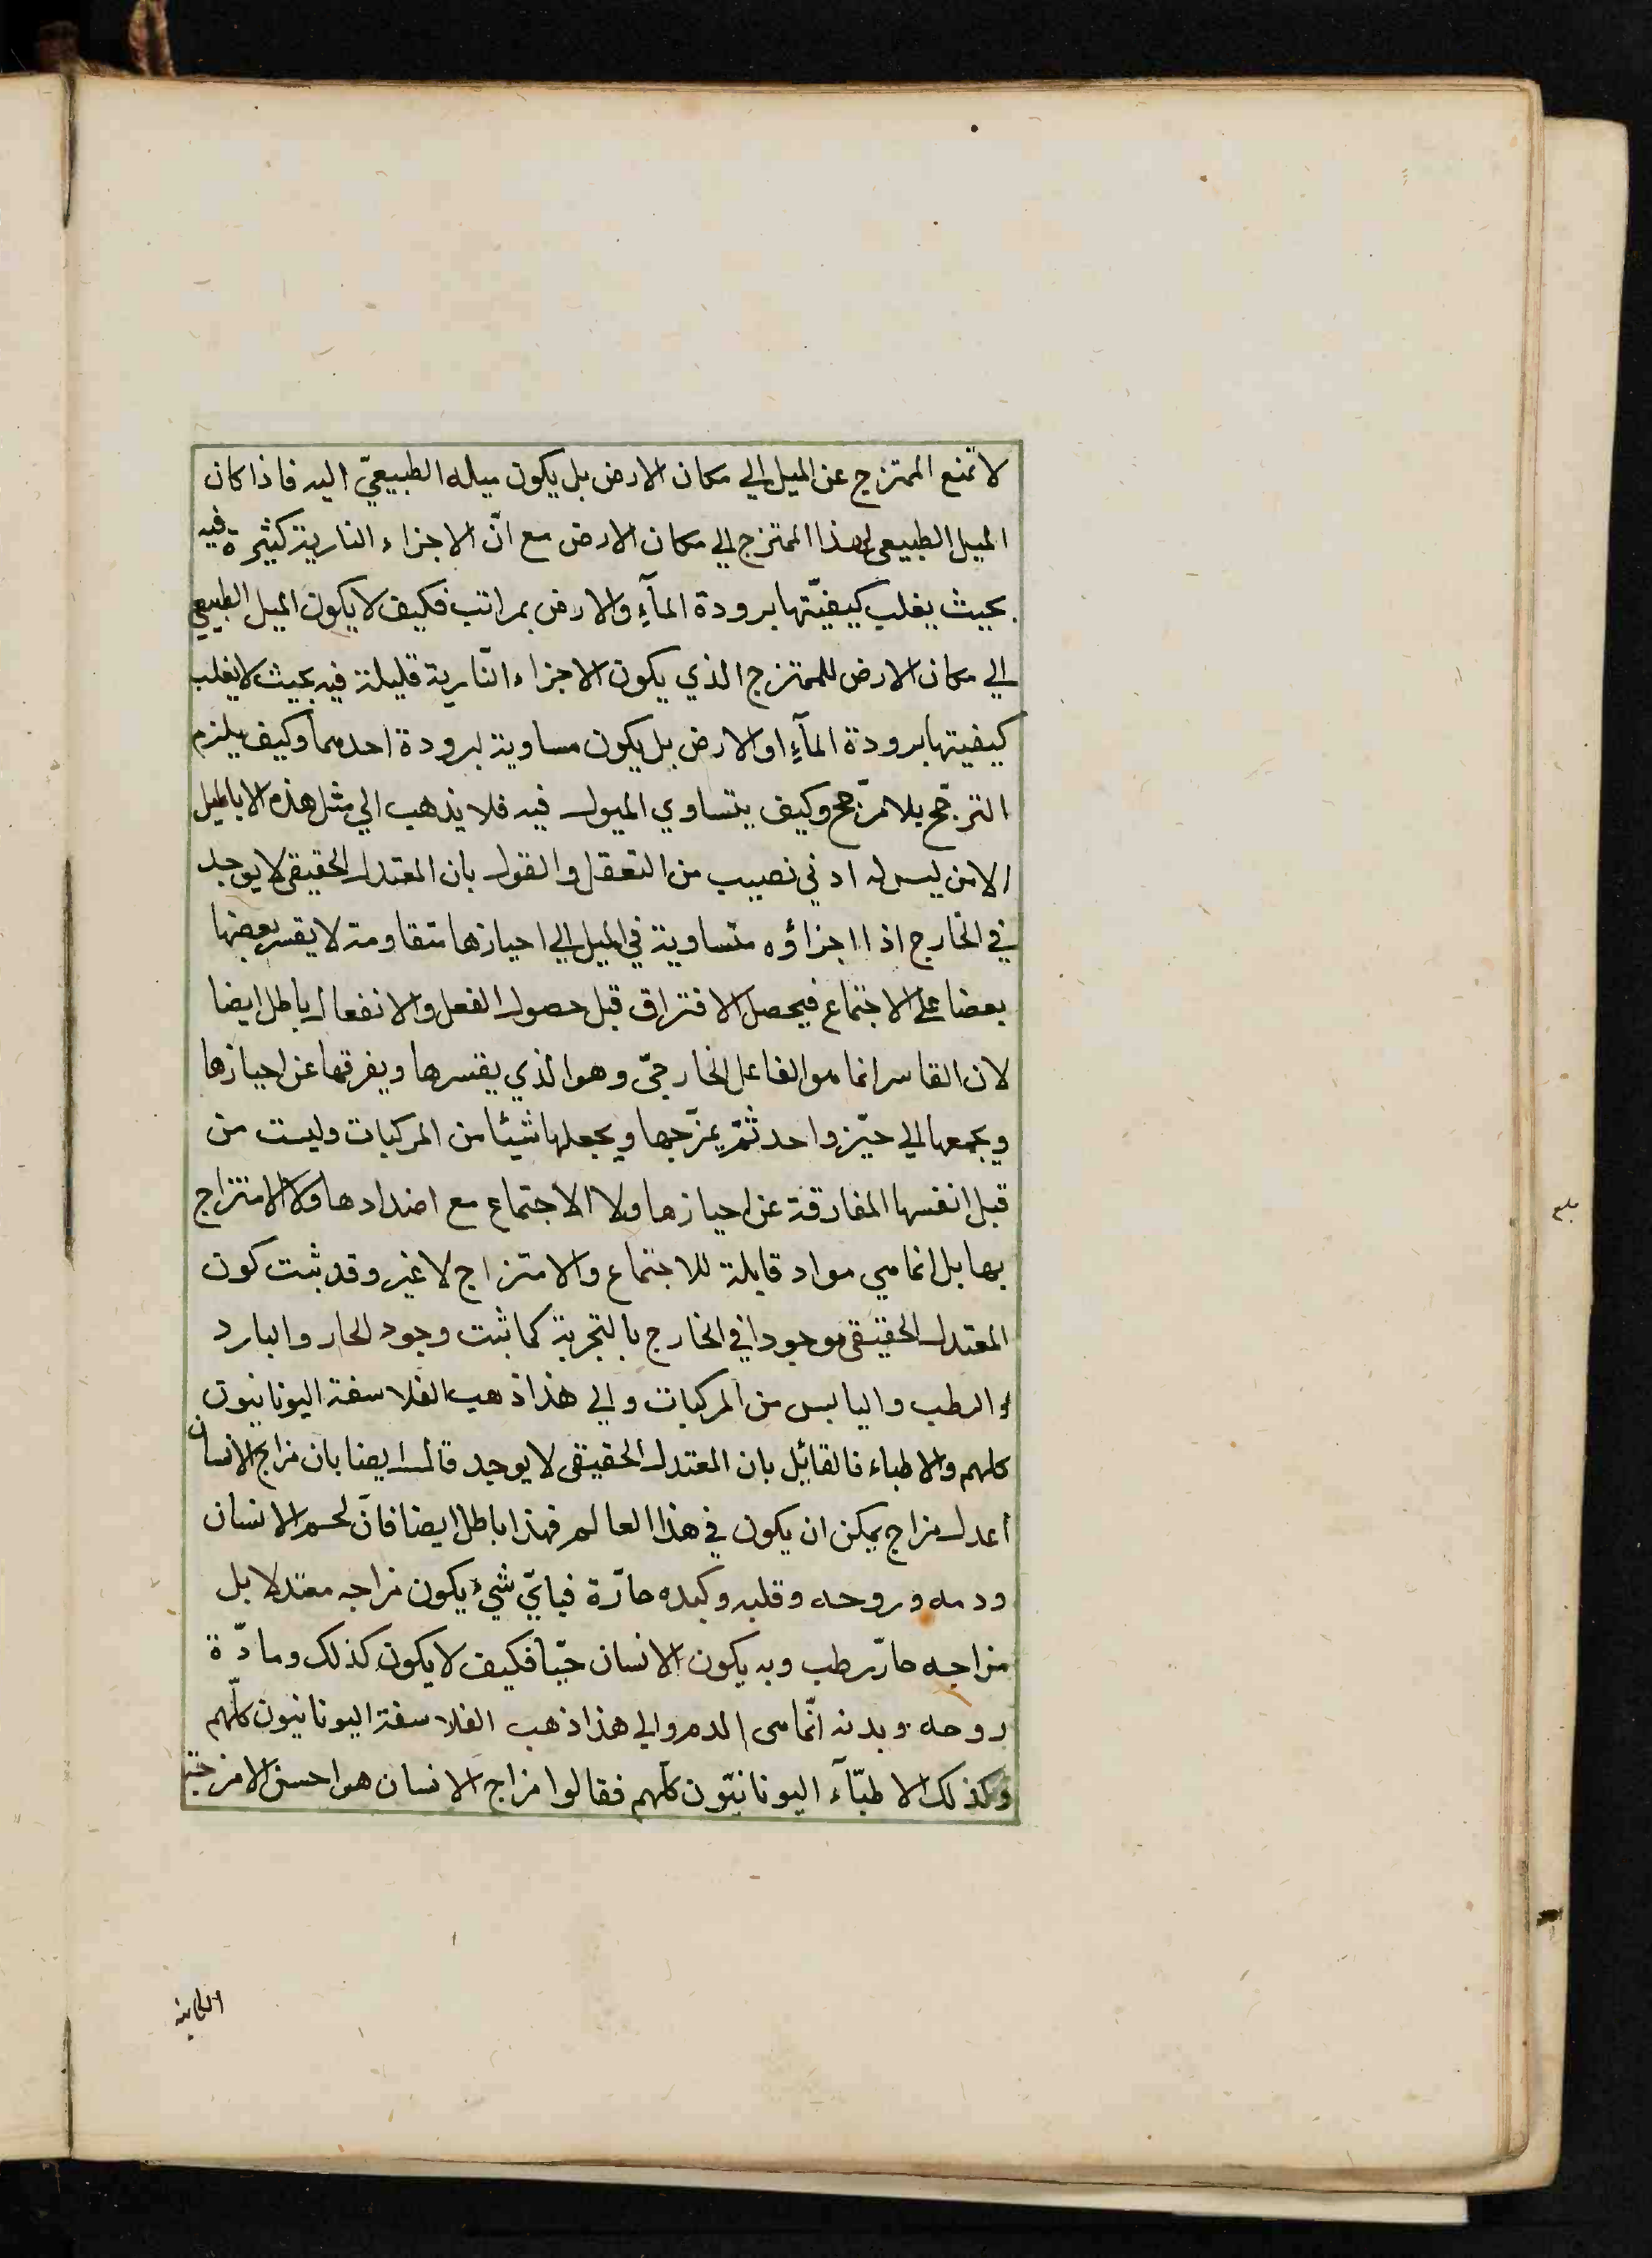 لا تمنع الممتزج عن الميل الي مكان الارض بل يكون ميله الطبيعيّ اليه فاذا كان
الميل الطبيعي لهذا الممتزج الي مكان الارض مع انّ الاجزاء النارية كثيرة فيه
بحيث يغلب كيفيّتها برودة المآءِ والارض بمراتب فكيف لا يكون الميل الطبيعي
الي مكان الارض للممتزج الذي يكون الاجزاء النّارية قليلة فيه بحيث لا يغلب
كيفيتها برودة المآءِ او الارض بل يكون مساوية لبرودة احدهما وكيف يلزم
الترجّح بلا مرّجح وكيف يتساوي الميول فيه فلا يذهب الي مثل هذه الاباطيل
الا من ليس له ادني نصيب من التعقل والقول بان المعتدل الحقيقي لا يوجد
في الخارج اذا اجزاؤه متساوية في الميل الي احيازها متقاومة لا يقسر بعضها
بعضا علي الاجتماع فيحصل الافتراق قبل حصول الفعل والانفعال باطل ايضا
لان القاسر انما هو الفاعل الخارجيّ وهو الذي يقسرها ويفرقها عن احيازها
ويجمعها الي حيّز واحد ثمّ يمزّجها ويجعلها شيئا من المركبات وليست من
قبل انفسها المفارقة عن احيازها ولا الاجتماع مع اضدادها ولا الامتزاج
بها بل انما هي مواد قابلة للاجتماع والامتزاج لا غير وقد ثبت كون
المعتدل الحقيقي موجودا في الخارج بالتجربة كما ثبت وجود الحار والبارد
والرطب واليابس من المركبات والي هذا ذهب الفلاسفة اليونانيون
كلهم والاطباء فالقائل بان المعتدل الحقيقي لا يوجد قال ايضا بان مزاج الانسان
أعدل مزاج يمكن ان يكون في هذا العالم فهذا باطل ايضا فانّ لحم الانسان
ودمه وروحه وقلبه وكبده حارّة فبايّ شيء يكون مزاجه معتدلا بل
مزاجه حارّ رطب وبه يكون الانسان حيّا فكيف لا يكون كذلك ومادّة
روحه وبدنه انّما هي الدم والي هذا ذهب الفلاسفة اليونانيون كلّهم
وكذلك الاطبّآء اليونانيّون كلّهم فقالوا مزاج الانسان هو احسن الامزجة